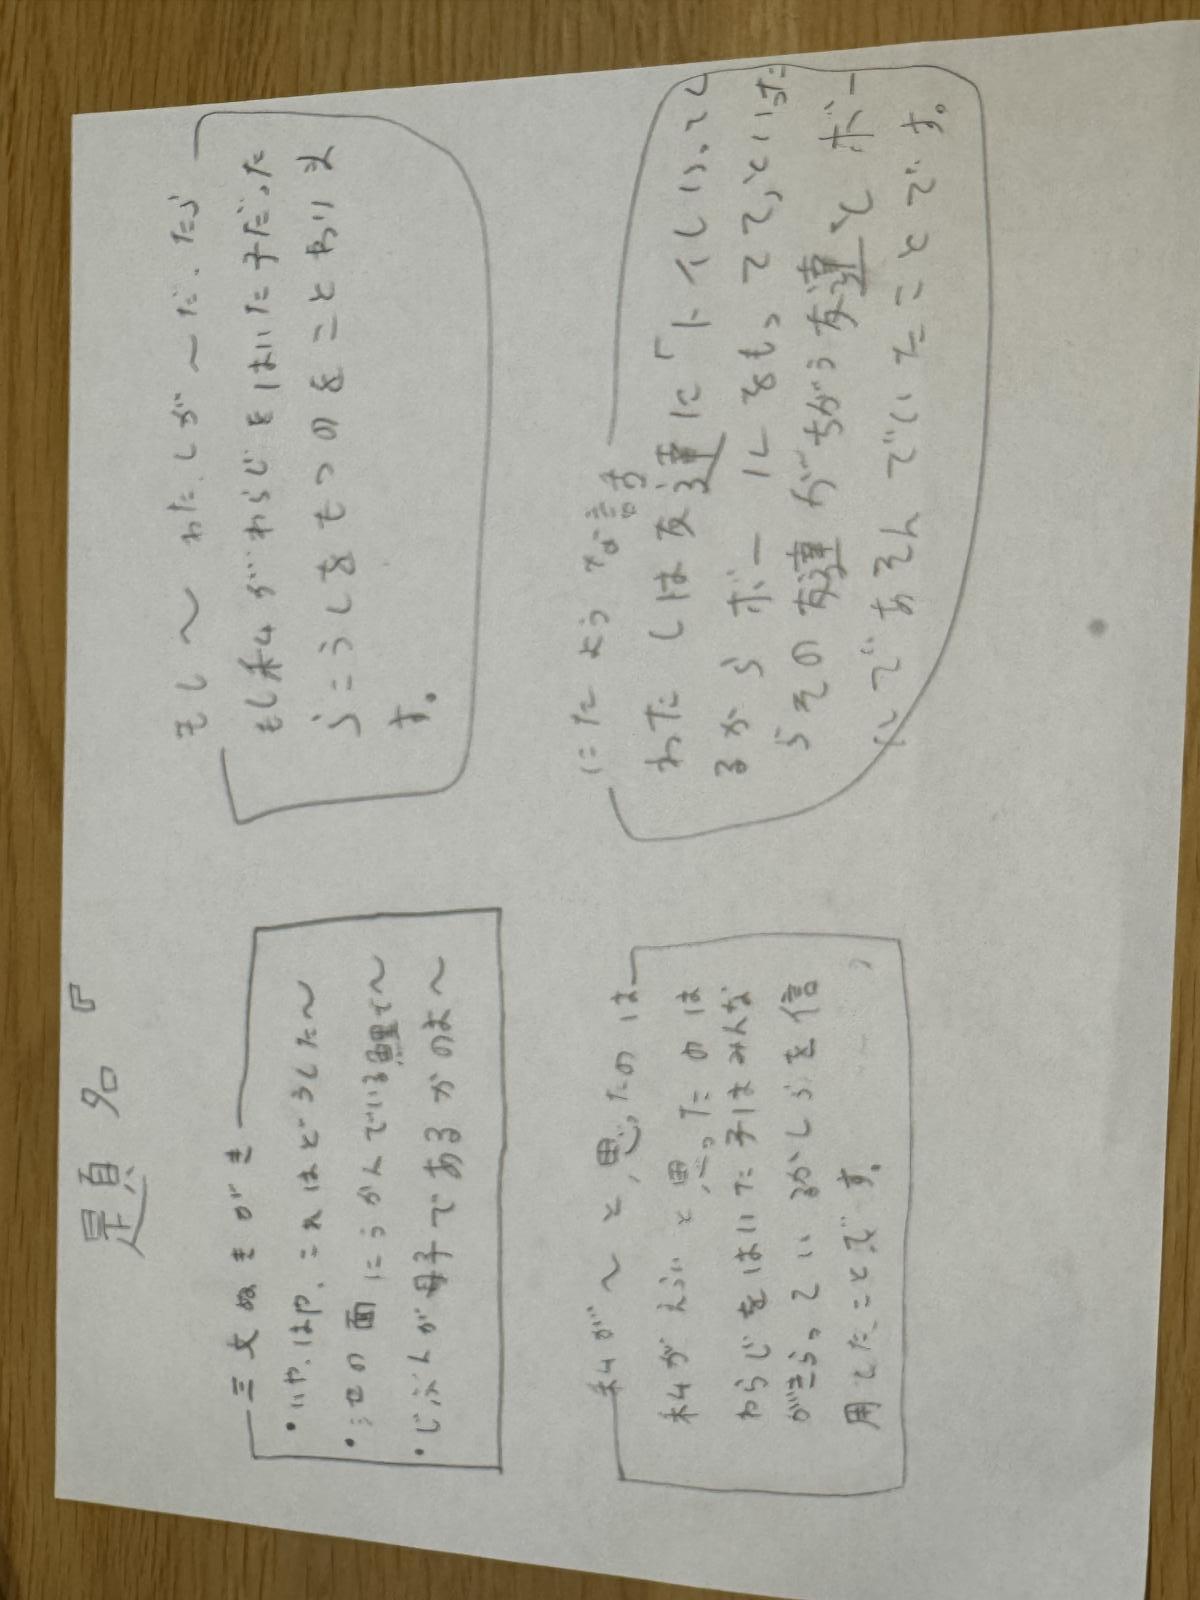 題名『
三文ぬきがき
・いや、はや、これはどうした〜
・池の面にうかんでいる鯉で〜
・じぶんが母子であるかのよ〜
もし〜わたしが〜だったら
もし私がわらじをはいた子だった
らこうしをもつのをことわりま
す。
私が〜と思ったのは
私がえらいと思ったのは
わらじをはいた子はみんな
がきらっているかしらを信
用したことです。
にたような話
わたしは友達に「トイレいってく
るからボールをもってて」といった
らその友達がちがう友達とボー
ルであそんでいたことです。